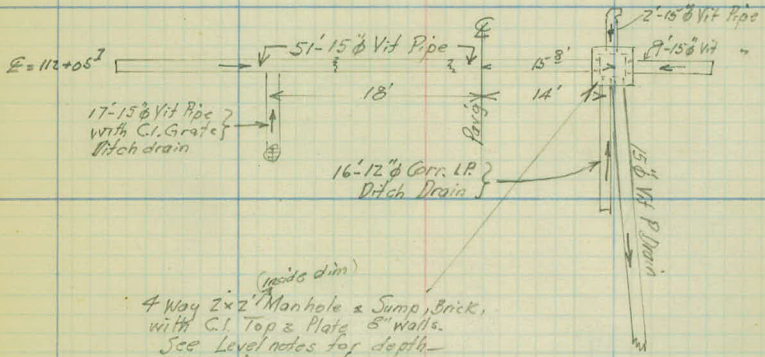 ℄
2'-15"ø Vit Pipe
51'-15"ø Vit Pipe
9'-15"ø Vit "
℄ = 112+05
15
18'
14'
17'-15"ø Vit Pipe
with C.I. Grate
Ditch drain
16'-12"ø Corr. I.P.
Ditch Drain
15"ø Vit P. Drain
(inside dim)
4 Way 2'x2' Manhole & Sump, Brick,
with C.I. Top & Plate 8" walls.
See Level notes for depth—